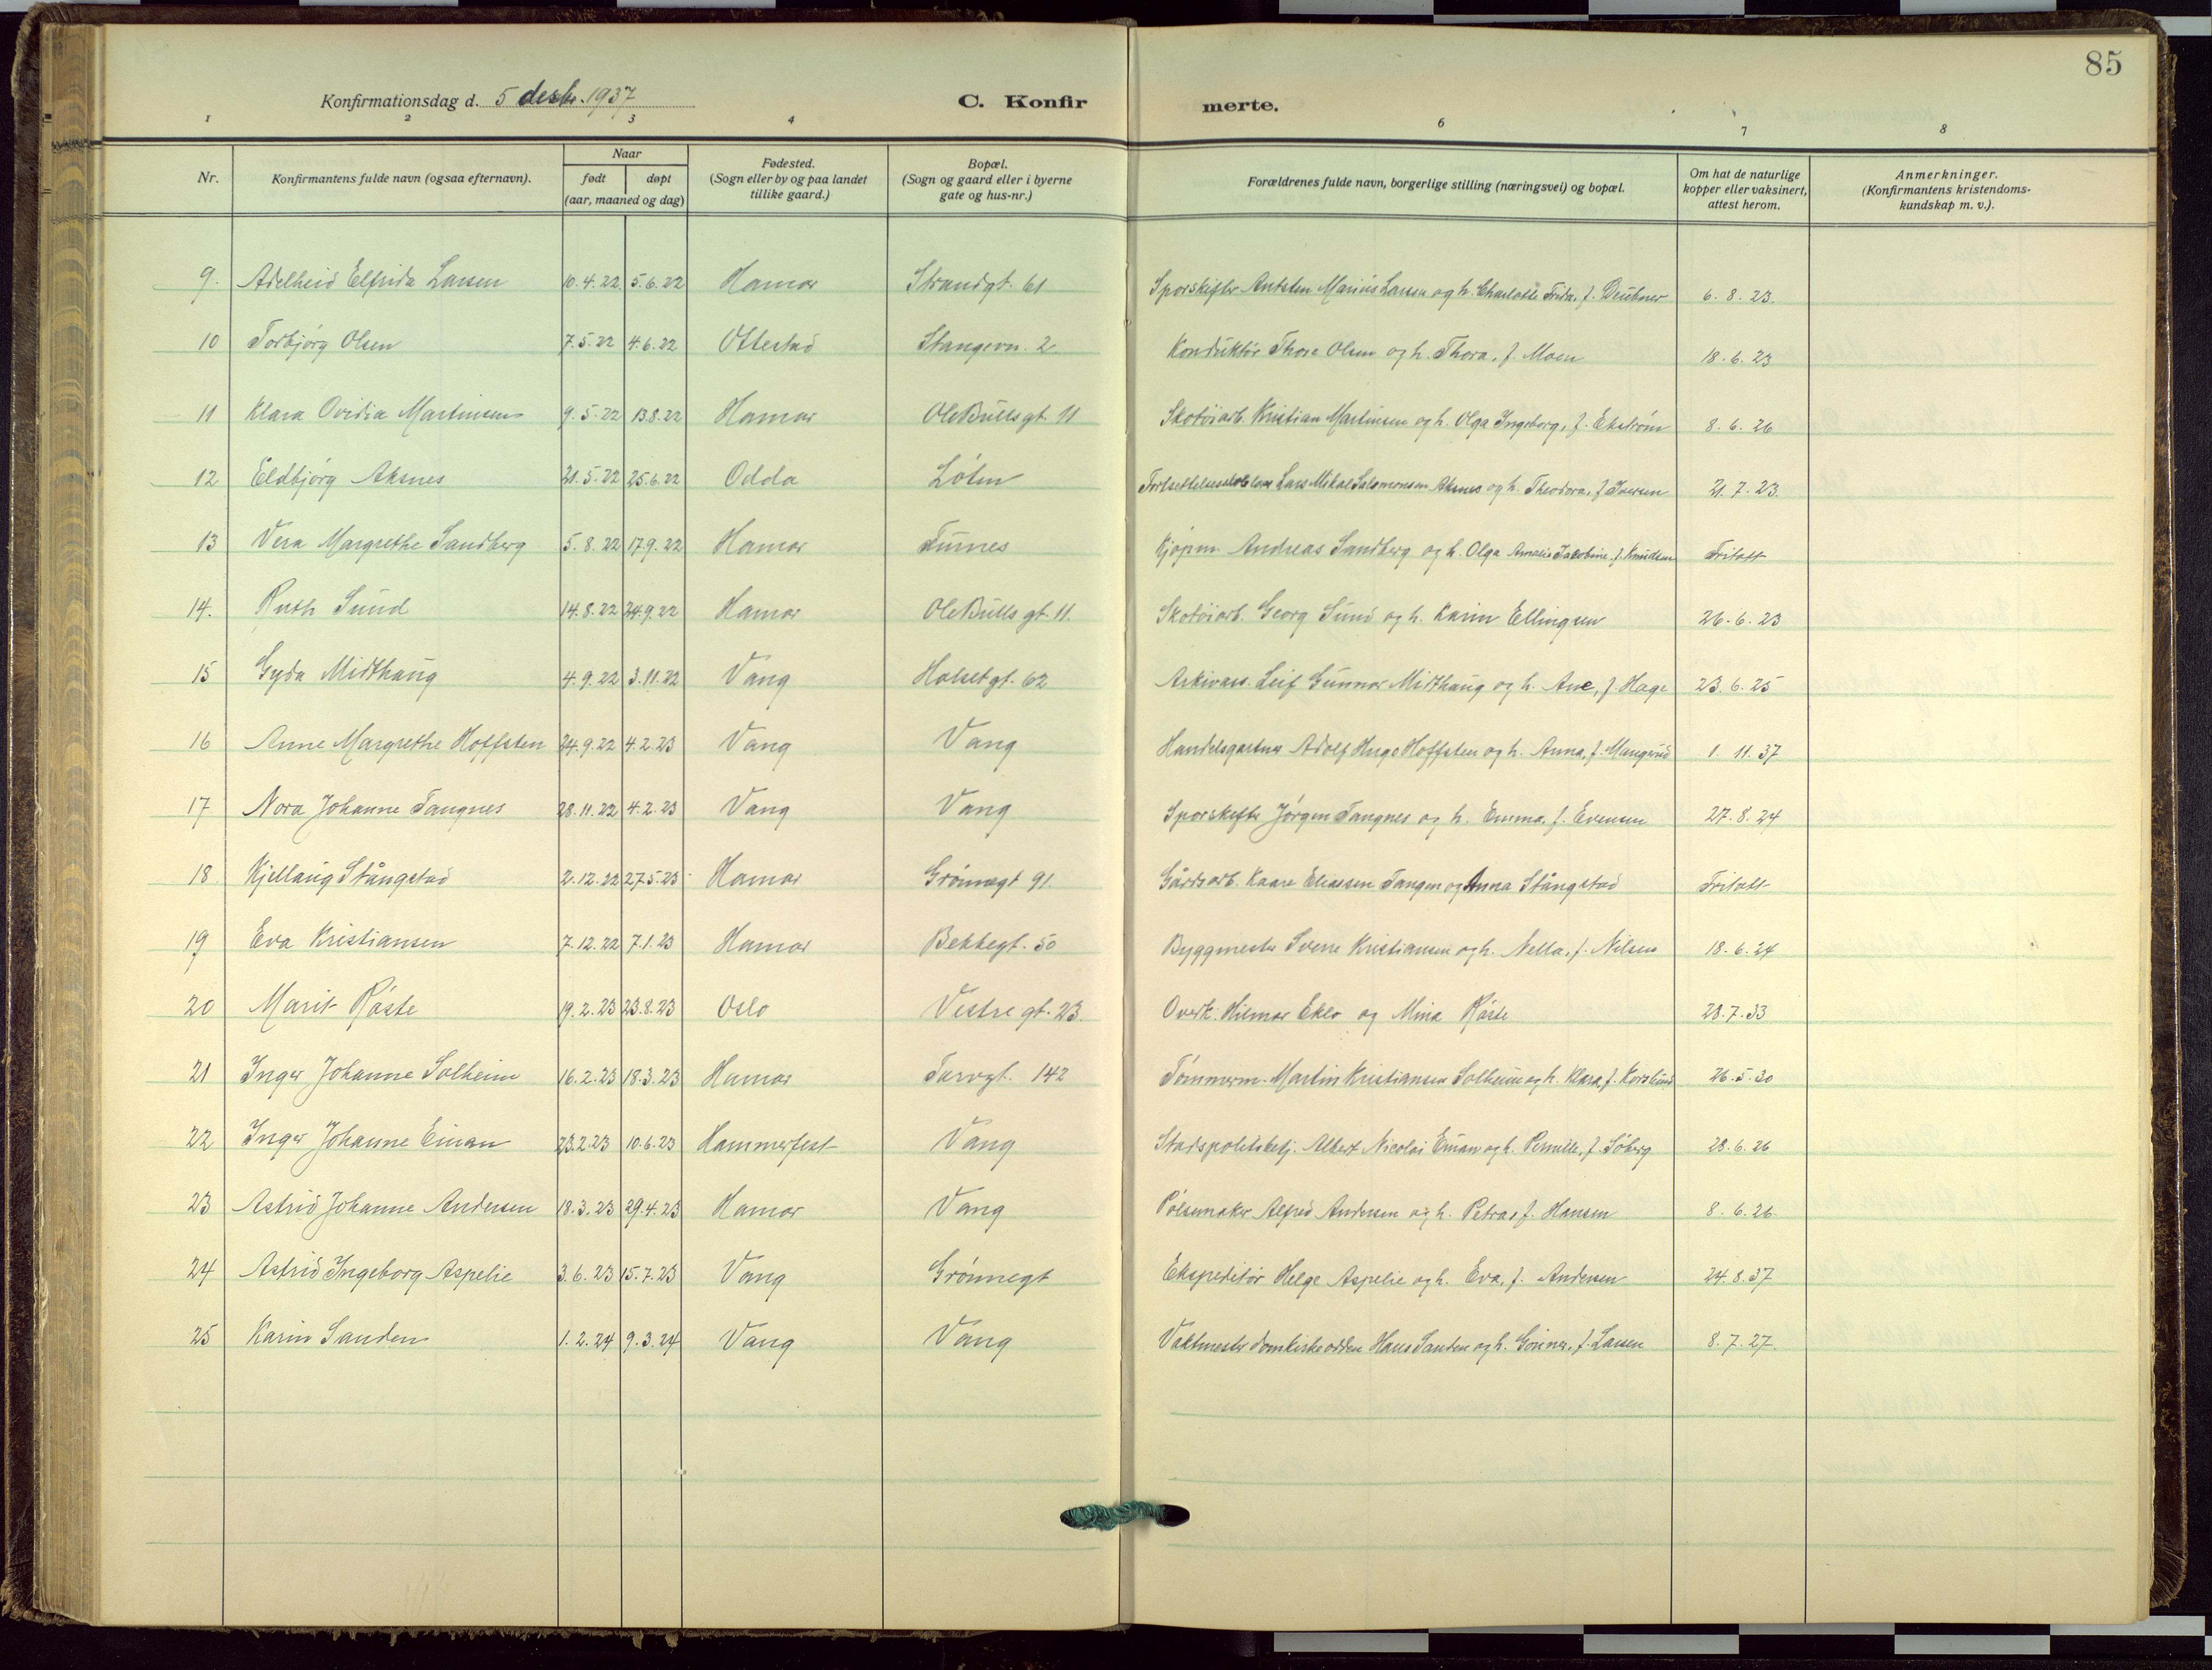 85
Konfirmationsdag d. 5 desbr. 1937 C. Konfir merte.
1 2 3 4 6 7 8
Nr. Konfirmantens fulde navn (ogsaa efternavn). Naar født døpt (aar, maaned og dag) Fødested. (Sogn eller by og paa landet tillike gaard.) Bopæl. (Sogn og gaard eller i byerne gate og hus-nr.) Forældrenes fulde navn, borgerlige stilling (næringsvei) og bopæl. Om hat de naturlige kopper eller vaksinert, attest herom. Anmerkninger. (Konfirmantens kristendoms-kundskap m. v.).
9. Adelheid Elfrida Larsen 10.4.22 5.6.22 Hamar Strandgt. 61 Sporskifter Antsten Marius Larsen og h. Charlotte Frida, f. Deubner 6.8.23.
10 Torbjørg Olsen 7.5.22 4.6.22 Ottestad Stangevn. 2 Konduktør Thore Olsen og h. Thora, f. Moen 18.6.23
11 Klara Ovidia Martinsen 9.5.22 13.8.22 Hamar Ole Bullsgt. 11 Skotøiarb. Kristian Martinsen og h. Olga Ingeborg, f. Ekstrøm 8.6.26
12 Eldbjørg Aksnes 21.5.22 25.6.22 Odda Løten Lars Mikal Salomonsen Aksnes og h. Theodora, f. Iversen 21.7.23.
13 Vera Margrethe Sandberg 5.8.22 17.9.22 Hamar Furnes Kjøpm. Andreas Sandberg og h. Olga Amalie Jakobine, f. Knudsen Fritatt
14. Ruth Sund 14.8.22 24.9.22 Hamar Ole Bulls gt. 11. Skotøiarb. Georg Sund og h. Karin Ellingsen 26.6.23
15 Gyda Midthaug 4.9.22 3.11.22 Vang Holsetgt. 62 Arkivass. Leif Gunnar Midthaug og h. Ane, f. Hage 23.6.25
16 Anne Margrethe Hoffsten 24.9.22 4.2.23 Vang Vang Handelsgartner Adolf Hugo Hoffsten og h. Anna, f. Mangrud 1.11.37
17 Nora Johanne Tangnes 28.11.22 4.2.23 Vang Vang Sporskifter Jørgen Tangnes og h. Emma, f. Evensen 27.8.24
18 Kjellaug Stångstad 2.12.22 27.5.23 Hamar Grønnegt 91 Gårdsarb. Kaare Eliassen Tangen og Anna Stångstad Fritatt
19 Eva Kristiansen 7.12.22 7.1.23 Hamar Bekkegt. 50 Byggmester Sverre Kristiansen og h. Nella, f. Nilsen 18.6.24
20 Marit Røste 19.2.23 23.8.23 Oslo Vestre gt. 23. Overk. Hilmar Eklo og Mina Røste 28.7.33
21 Inger Johanne Solheim 16.2.23 18.3.23 Hamar Torvgt. 142 Tømmerm. Martin Kristiansen Solheim og h. Klara, f. Korslund 26.5.30
22 Inger Johanne Einan 23.2.23 10.6.23 Hammerfest Vang Stadspolitibetj. Albert Nicolai Einan og h. Pernille, f. Søberg 28.6.26
23 Astrid Johanne Andersen 18.3.23 29.4.23 Hamar Vang Pølsemaker Alfred Andersen og h. Petra, f. Hansen 8.6.26
24 Astrid Ingeborg Aspelie 3.6.23 15.7.23 Vang Grønnegt Ekspeditør Helge Aspelie og h. Eva, f. Andersen 24.8.37
25 Karin Sanden 1.2.24 9.3.24 Vang Vang Vaktmester domkirkeodden Hans Sanden og h. Gunner, f. Larsen 8.7.27.